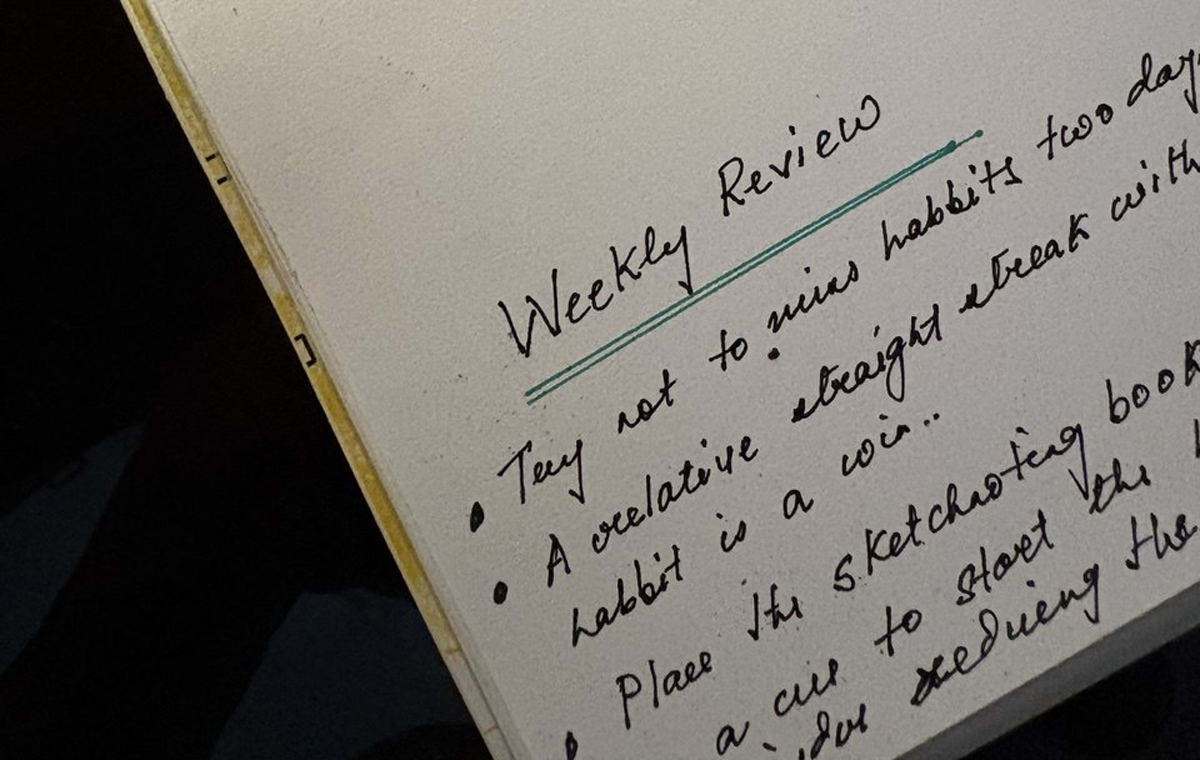 Weekly Review
• Try not to miss habbits two day
• A relative straight streak with
habbit is a win..
• Place the sketchnoting book
a cue to start the
reducing the